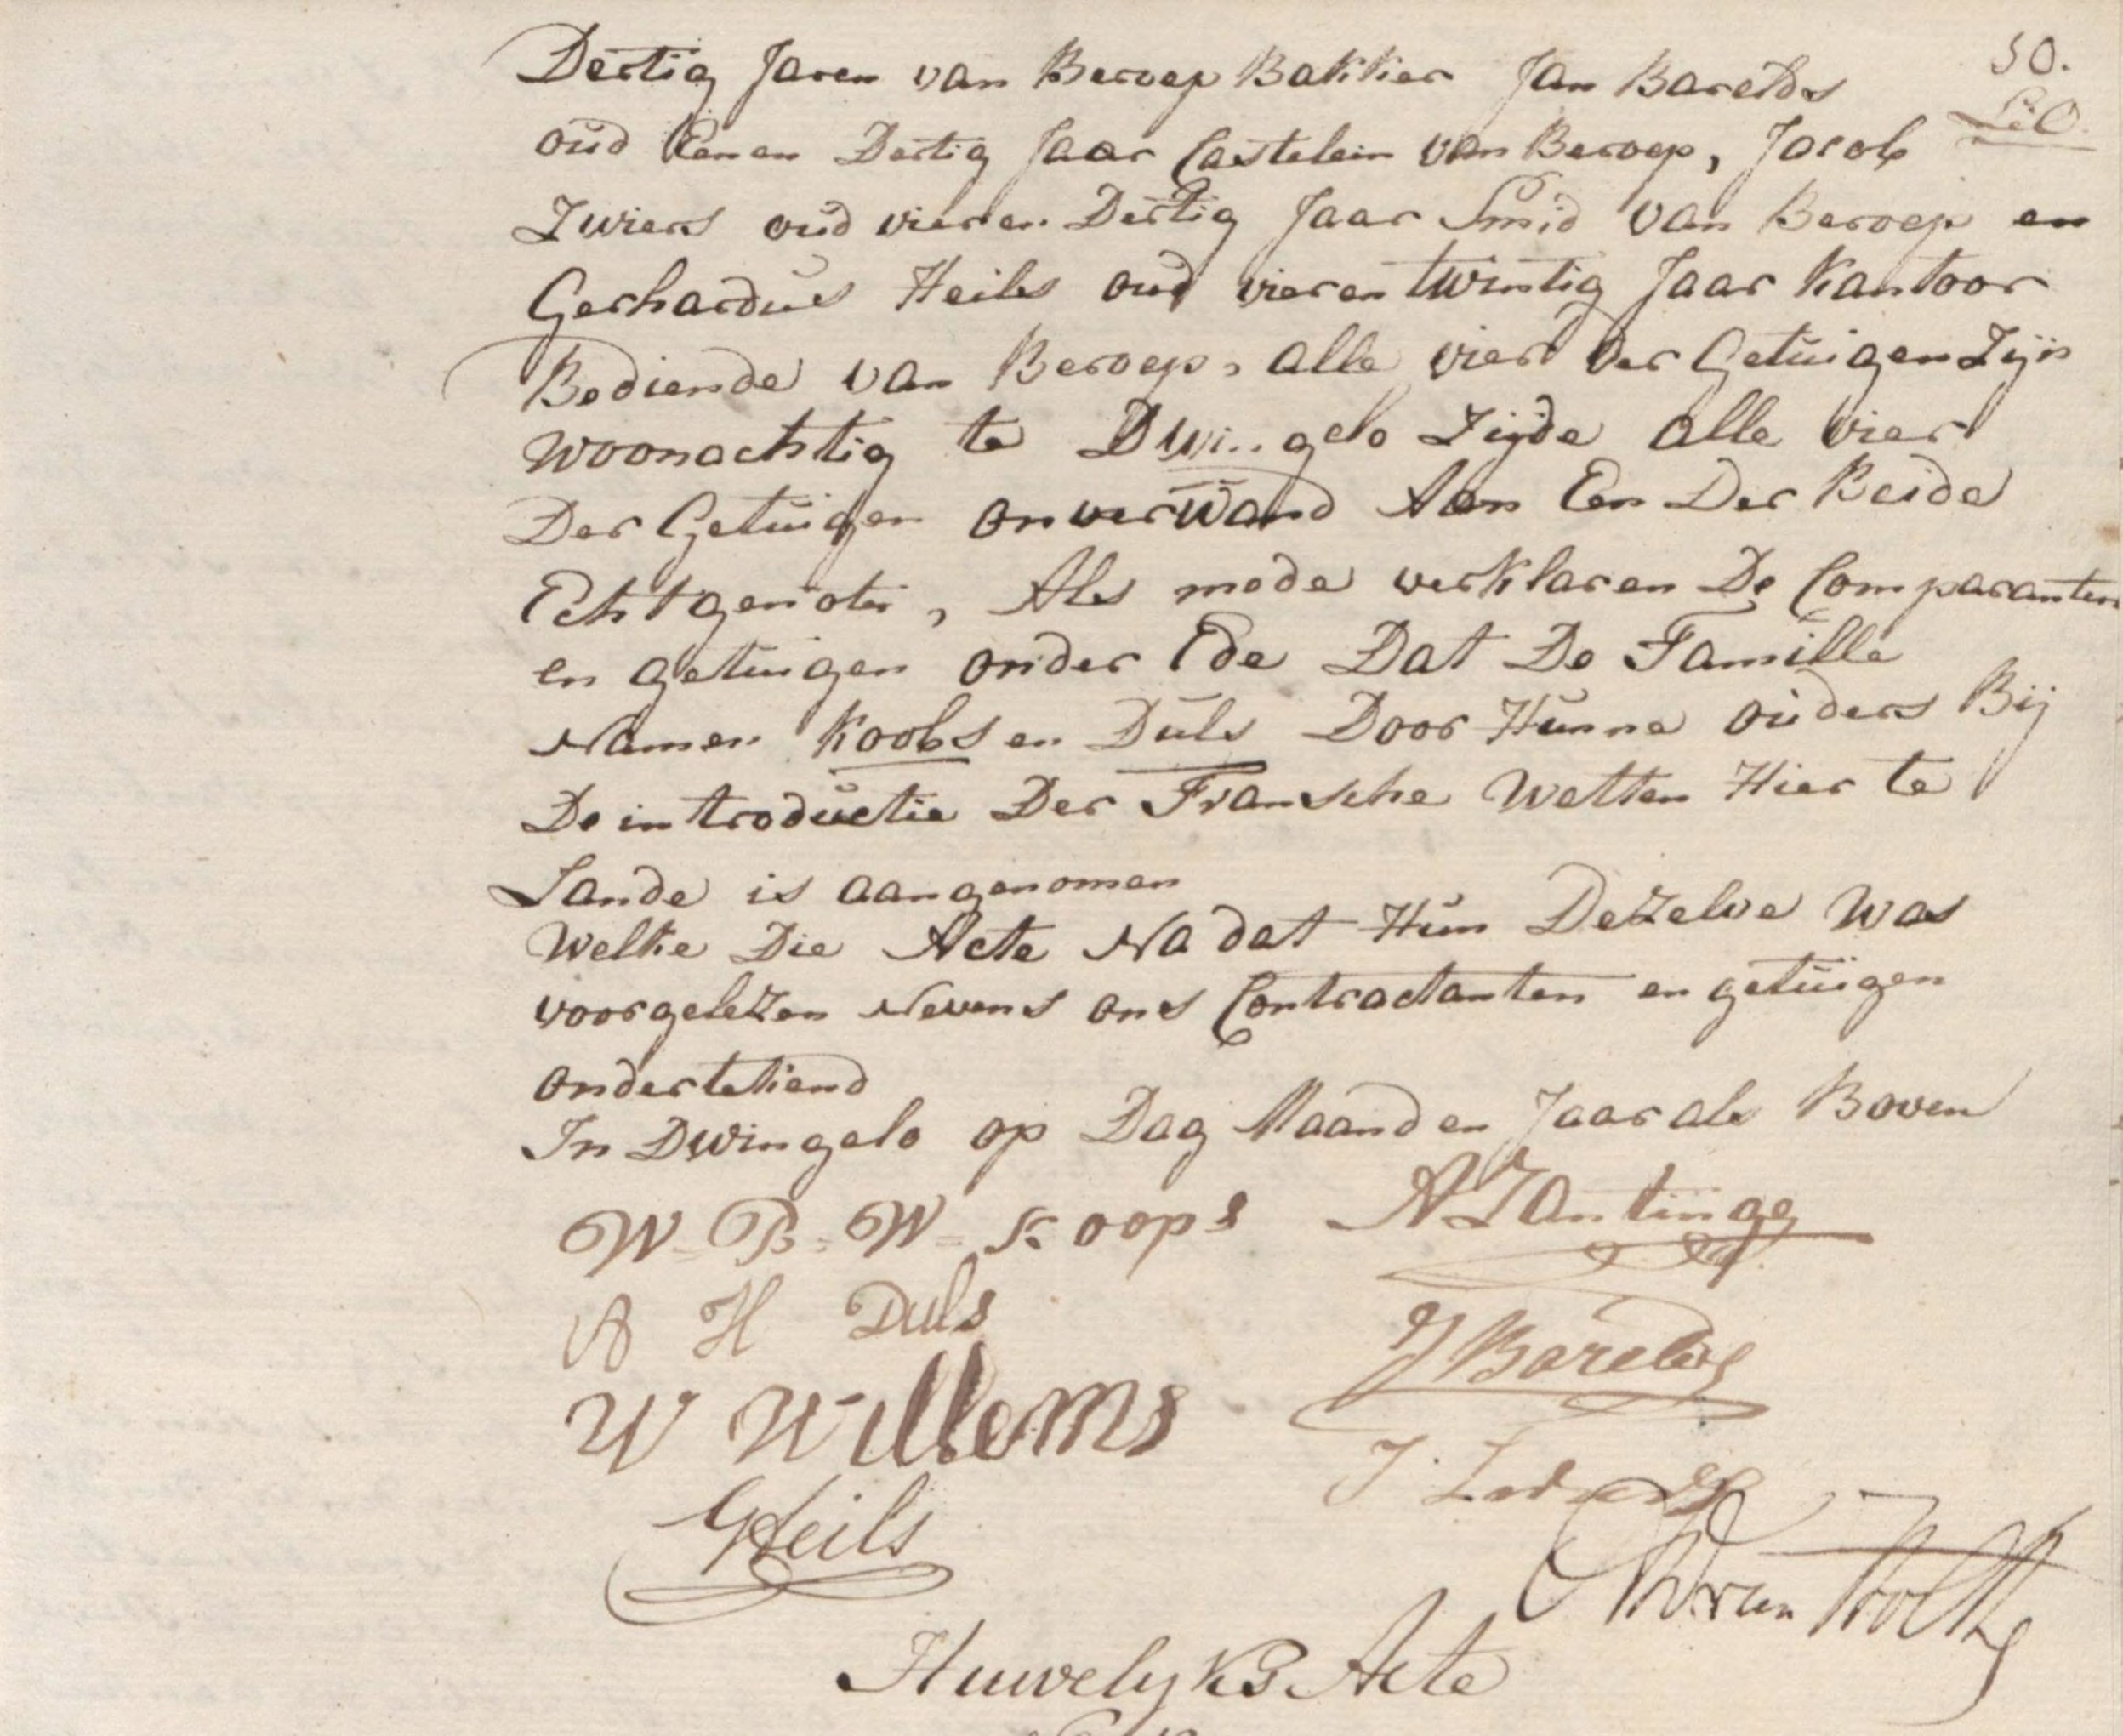 50.
Dertig Jaren van Beroep Bakker Jan Barelds
oud Eenen Dertig Jaar Castelein van Beroep, Jacob
Zwiers oud vieren Dertig Jaar Smid van Beroep en
Gerhardus Heils oud vieren twintig Jaar Kantoor
Bediende van Beroep, alle vier der Getuigen Zijn
woonachtig te Dwingelo Zijde alle vier
Der Getuigen onverwand Aan Een Der Beide
Echtgenoten, Als mede verklaren De Comparanten
en getuigen onder Ede Dat De Famille
Namen Koobs en Duls Door Hunne ouders Bij
De introductie Der Fransche Wetten Hier te
Lande is aangenomen
Welke Die Acte Na dat Hun Dezelve was
voorgelezen Nevens ons Contractanten en getuigen
ondertekend
In Dwingelo op Dag Maand en Jaar als Boven
W B W Koops A Zantinge
A H Duls
J Barelds
W Willems
GHeils
Huwelyks Acte